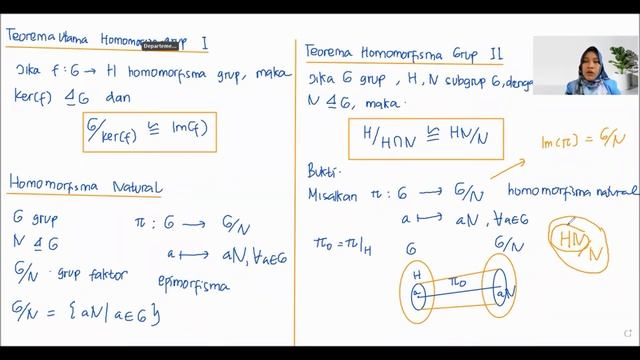 Teorema Utama Homomorfisma Grup I
Departeme...
Jika f : G → H homomorfisma grup, maka
Ker(f) ⊴ G dan
G/Ker(f) ≅ Im(f)
Homomorfisma Natural
G grup
N ⊴ G
G/N · grup faktor
G/N = { aN | a∈G }
π : G → G/N
a ↦ aN, ∀a∈G
epimorfisma
Teorema Homomorfisma Grup II
Jika G grup , H, N subgrup G, denga
N ⊴ G, maka ·
H/H∩N ≅ HN/N
Bukti ·
Misalkan π : G → G/N homomorfisma natural
a ↦ aN, ∀a∈G
π₀ = π|H
G G/N
H
a π₀ aN
Im(π) = G/N
HN/N